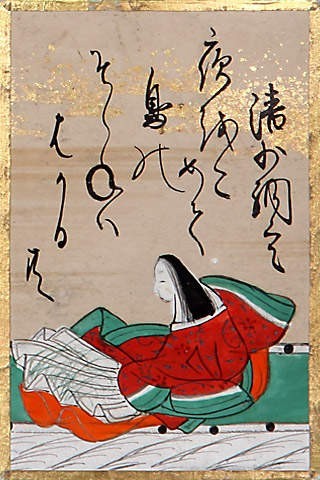 清少納言
夜をこめて
鳥の
そらねハ
はかる
共